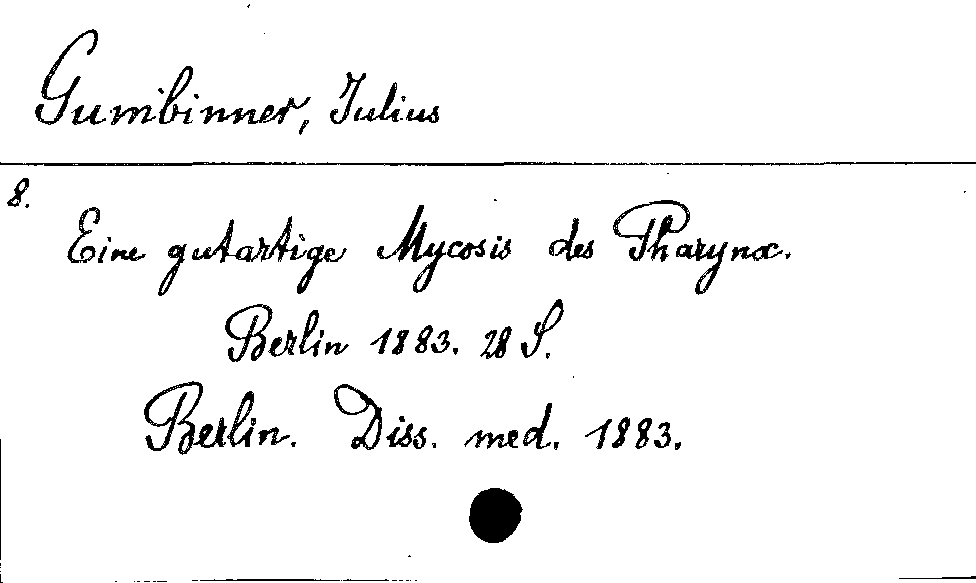 Gumbinner, Julius
8.
Eine gutartige Mycosis des Pharynx.
Berlin 1883. 28 S.
Berlin. Diss. med. 1883.